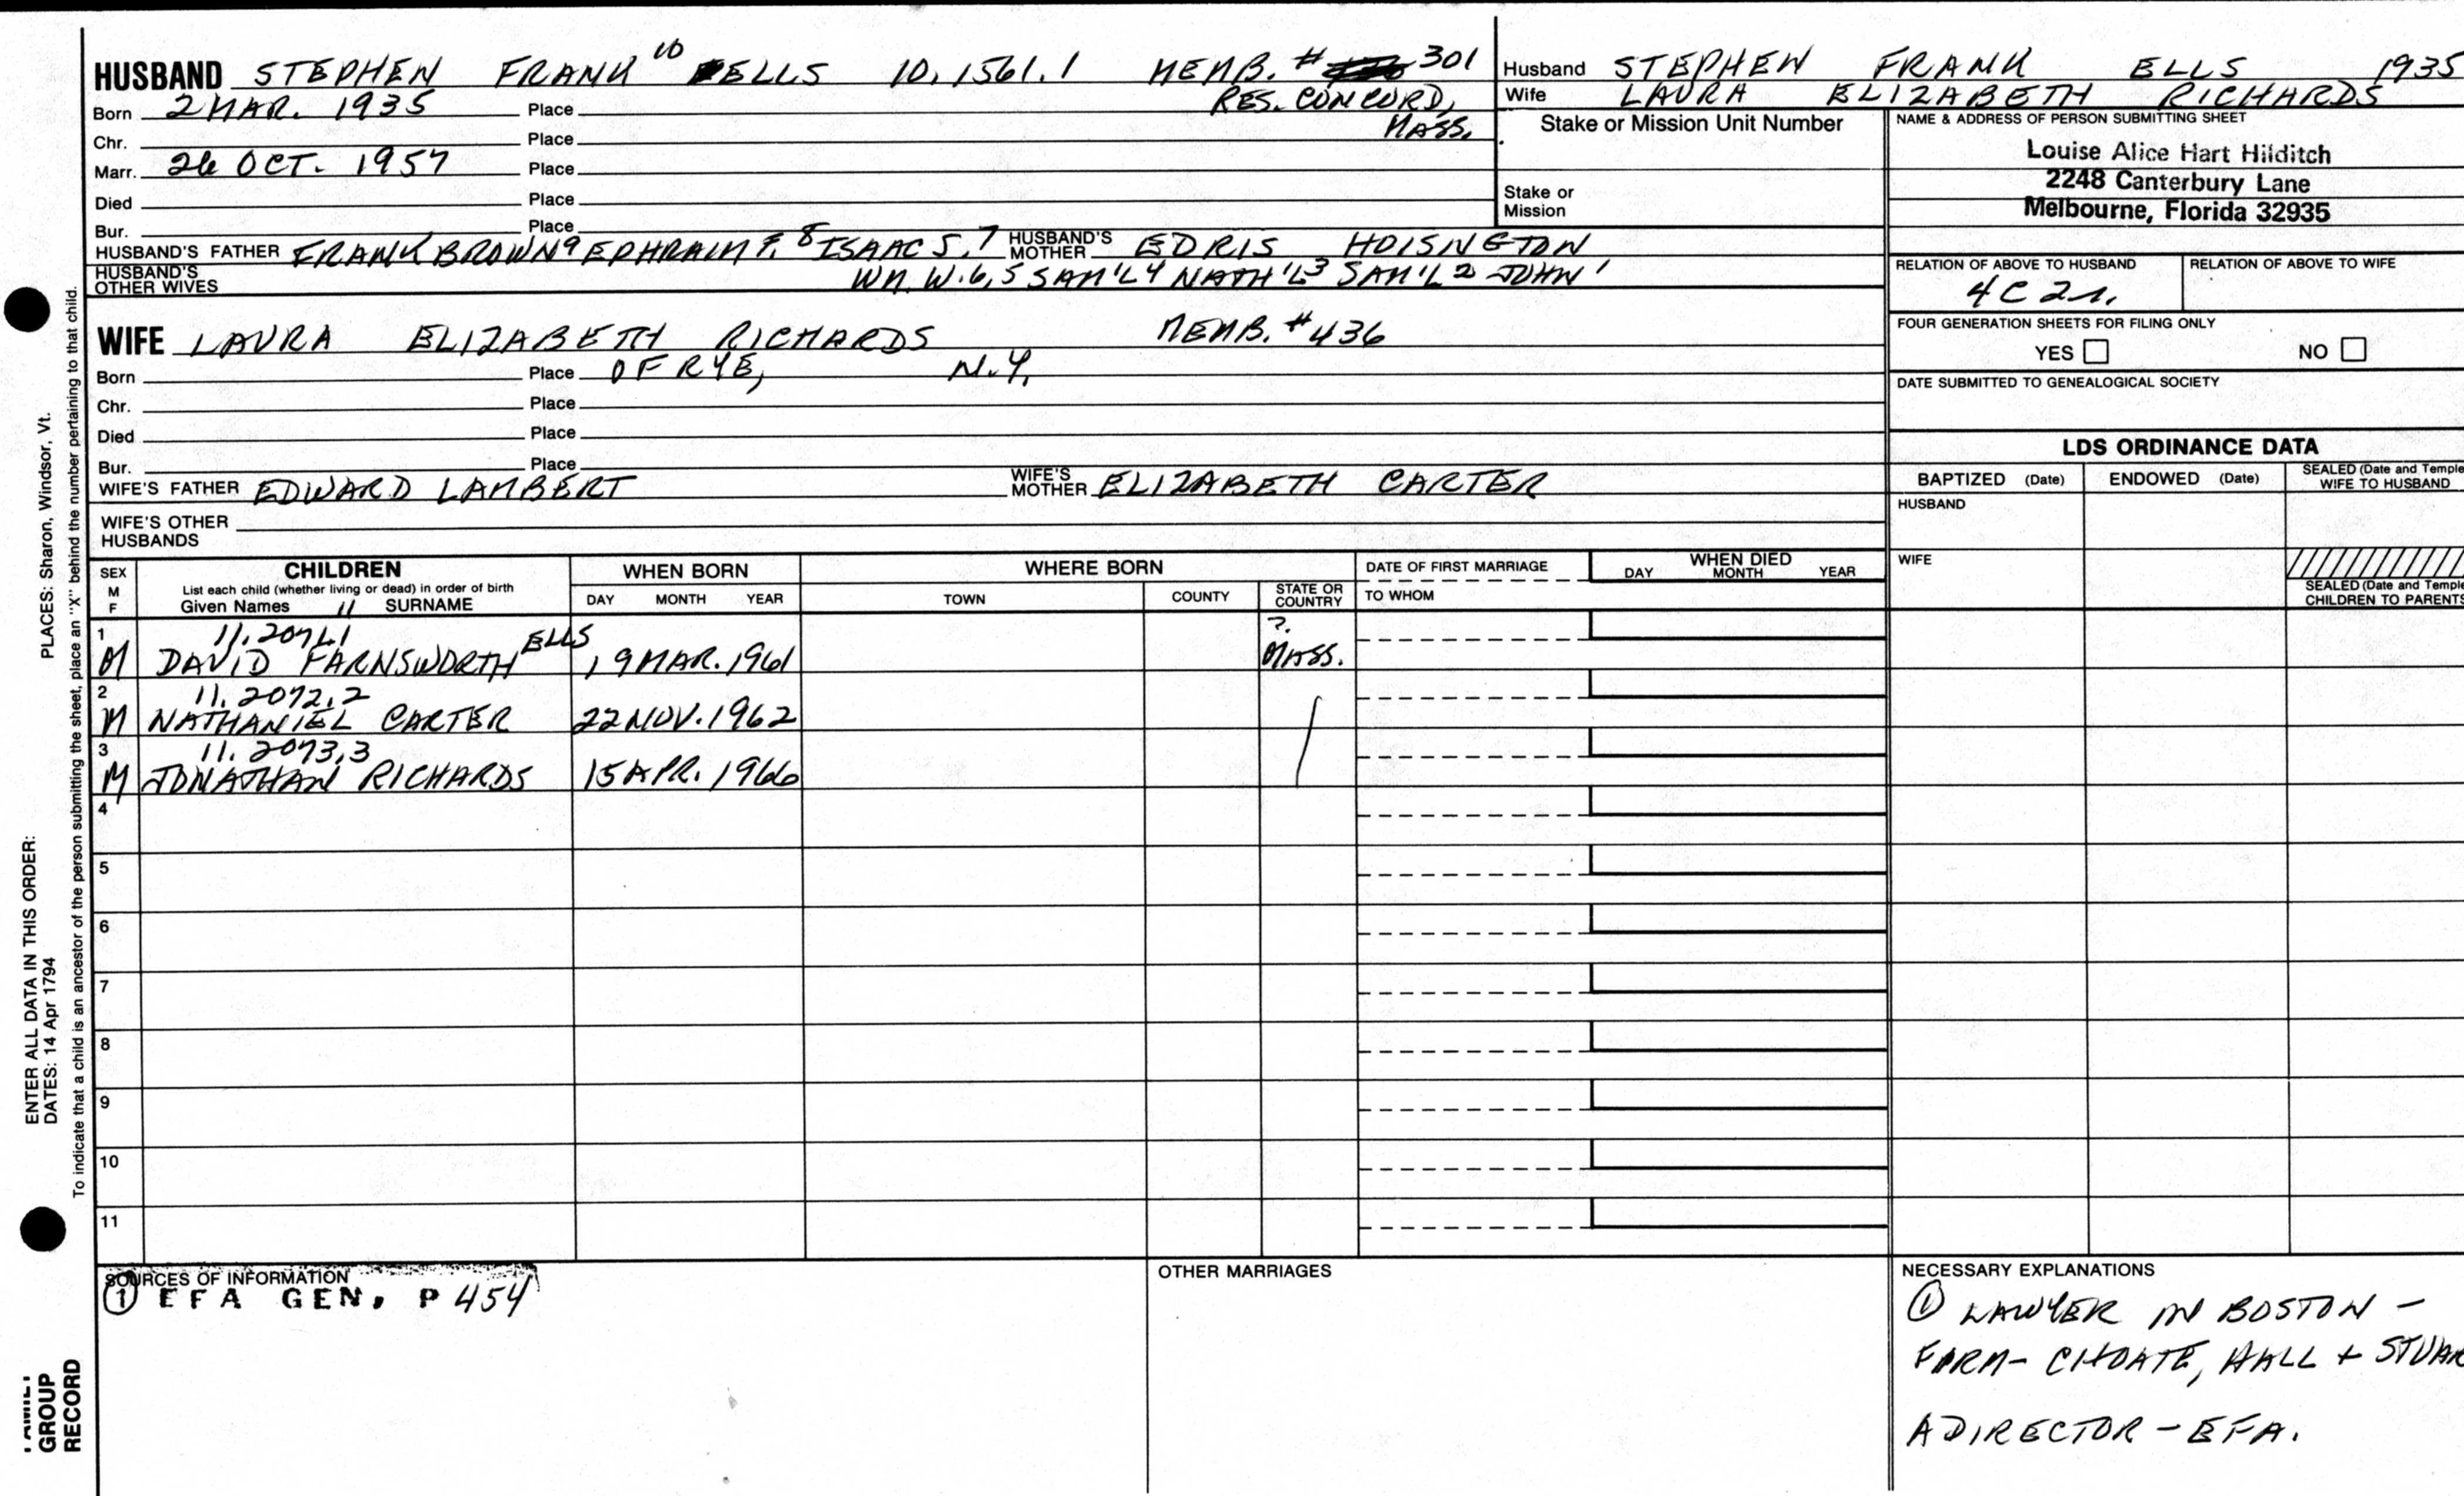 HUSBAND STEPHEN FRANK 10 ELLS 10.1561.1 MEMB. # 301
RES. CONCORD, MASS.
Born 2 MAR. 1935 Place
Chr. Place
Marr. 26 OCT. 1957 Place
Died Place
Bur. Place
HUSBAND'S FATHER FRANK BROWN 9 EPHRAIM F. 8 ISAAC S. 7 HUSBAND'S MOTHER EDRIS HOISNGTON
HUSBAND'S OTHER WIVES WM. W. 6, 5 SAM'L 4 NATH'L 3 SAM'L 2 JOHN 1
WIFE LAURA ELIZABETH RICHARDS MEMB. # 436
Born Place OF RYE, N.Y.
Chr. Place
Died Place
Bur. Place
WIFE'S FATHER EDWARD LAMBERT WIFE'S MOTHER ELIZABETH CARTER
WIFE'S OTHER HUSBANDS
Husband STEPHEN FRANK ELLS 1935
Wife LAURA ELIZABETH RICHARDS
Stake or Mission Unit Number
Stake or Mission
NAME & ADDRESS OF PERSON SUBMITTING SHEET
Louise Alice Hart Hilditch
2248 Canterbury Lane
Melbourne, Florida 32935
RELATION OF ABOVE TO HUSBAND RELATION OF ABOVE TO WIFE
4 C 2 r.
FOUR GENERATION SHEETS FOR FILING ONLY
YES NO
DATE SUBMITTED TO GENEALOGICAL SOCIETY
LDS ORDINANCE DATA
BAPTIZED (Date) ENDOWED (Date) SEALED (Date and Temple WIFE TO HUSBAND
HUSBAND
WIFE
SEALED (Date and Temple CHILDREN TO PARENTS
SEX M F CHILDREN WHEN BORN WHERE BORN DATE OF FIRST MARRIAGE WHEN DIED
List each child (whether living or dead) in order of birth
Given Names 11 SURNAME DAY MONTH YEAR TOWN COUNTY STATE OR COUNTRY TO WHOM DAY MONTH YEAR
1 11.2071.1 ?.
M DAVID FARNSWORTH ELLS 19 MAR. 1961 MASS.
2 11.2072.2
M NATHANIEL CARTER 22 NOV. 1962
3 11.2073.3
M JONATHAN RICHARDS 15 APR. 1966
4
5
6
7
8
9
10
11
SOURCES OF INFORMATION
① EFA GEN, P 454
OTHER MARRIAGES
NECESSARY EXPLANATIONS
① LAWYER IN BOSTON –
FIRM – CHOATE, HALL + STUAR
A DIRECTOR – EFA.
PLACES: Sharon, Windsor, Vt.
ENTER ALL DATA IN THIS ORDER:
DATES: 14 Apr 1794
To indicate that a child is an ancestor of the person submitting the sheet, place an "X" behind the number pertaining to that child.
FAMILY
GROUP
RECORD